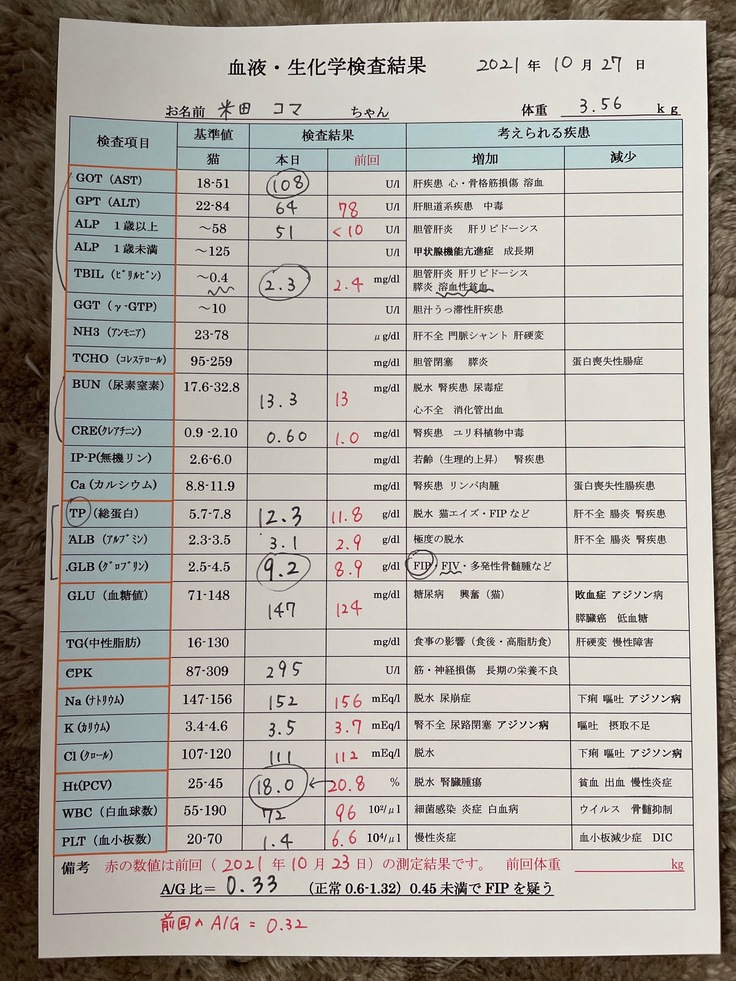 血液・生化学検査結果 2021 年 10 月 27 日
お名前 米田 コマ ちゃん 体重 3.56 kg
検査項目 基準値 検査結果 考えられる疾患
猫 本日 前回 増加 減少
GOT (AST) 18-51 108 U/l 肝疾患 心・骨格筋損傷 溶血
GPT (ALT) 22-84 64 78 U/l 肝胆道系疾患 中毒
ALP 1歳以上 ～58 51 <10 U/l 胆管肝炎 肝リピドーシス
ALP 1歳未満 ～125 U/l 甲状腺機能亢進症 成長期
TBIL (ﾋﾞﾘﾙﾋﾞﾝ) ～0.4 2.3 2.4 mg/dl 胆管肝炎 肝リピドーシス
膵炎 溶血性貧血
GGT (γ-GTP) ～10 U/l 胆汁うっ滞性肝疾患
NH3 (ｱﾝﾓﾆｱ) 23-78 μg/dl 肝不全 門脈シャント 肝硬変
TCHO (ｺﾚｽﾃﾛｰﾙ) 95-259 mg/dl 胆管閉塞 膵炎 蛋白喪失性腸症
BUN (尿素窒素) 17.6-32.8 13.3 13 mg/dl 脱水 腎疾患 尿毒症
心不全 消化管出血
CRE(ｸﾚｱﾁﾆﾝ) 0.9 -2.10 0.60 1.0 mg/dl 腎疾患 ユリ科植物中毒
IP-P(無機リン) 2.6-6.0 mg/dl 若齢（生理的上昇） 腎疾患
Ca (カルシウム) 8.8-11.9 mg/dl 腎疾患 リンパ肉腫 蛋白喪失性腸疾患
TP (総蛋白) 5.7-7.8 12.3 11.8 g/dl 脱水 猫エイズ・FIP など 肝不全 腸炎 腎疾患
ALB (ｱﾙﾌﾞﾐﾝ) 2.3-3.5 3.1 2.9 g/dl 極度の脱水 肝不全 腸炎 腎疾患
GLB (ｸﾞﾛﾌﾞﾘﾝ) 2.5-4.5 9.2 8.9 g/dl FIP・FIV・多発性骨髄腫など
GLU (血糖値) 71-148 147 124 mg/dl 糖尿病 興奮（猫） 敗血症 アジソン病
膵臓癌 低血糖
TG(中性脂肪) 16-130 mg/dl 食事の影響（食後・高脂肪食） 肝硬変 慢性障害
CPK 87-309 295 U/l 筋・神経損傷 長期の栄養不良
Na (ﾅﾄﾘｳﾑ) 147-156 152 156 mEq/l 脱水 尿崩症 下痢 嘔吐 アジソン病
K (ｶﾘｳﾑ) 3.4-4.6 3.5 3.7 mEq/l 腎不全 尿路閉塞 アジソン病 嘔吐 摂取不足
Cl (ｸﾛｰﾙ) 107-120 111 112 mEq/l 脱水 下痢 嘔吐 アジソン病
Ht(PCV) 25-45 18.0 ←20.8 % 脱水 腎臓腫瘍 貧血 出血 慢性炎症
WBC (白血球数) 55-190 72 96 10²/μl 細菌感染 炎症 白血病 ウイルス 骨髄抑制
PLT (血小板数) 20-70 1.4 6.6 10⁴/μl 慢性炎症 血小板減少症 DIC
備考 赤の数値は前回（ 2021 年 10 月 23 日）の測定結果です。 前回体重 kg
A/G 比＝ 0.33 （正常 0.6-1.32）0.45 未満で FIP を疑う
前回の A/G = 0.32